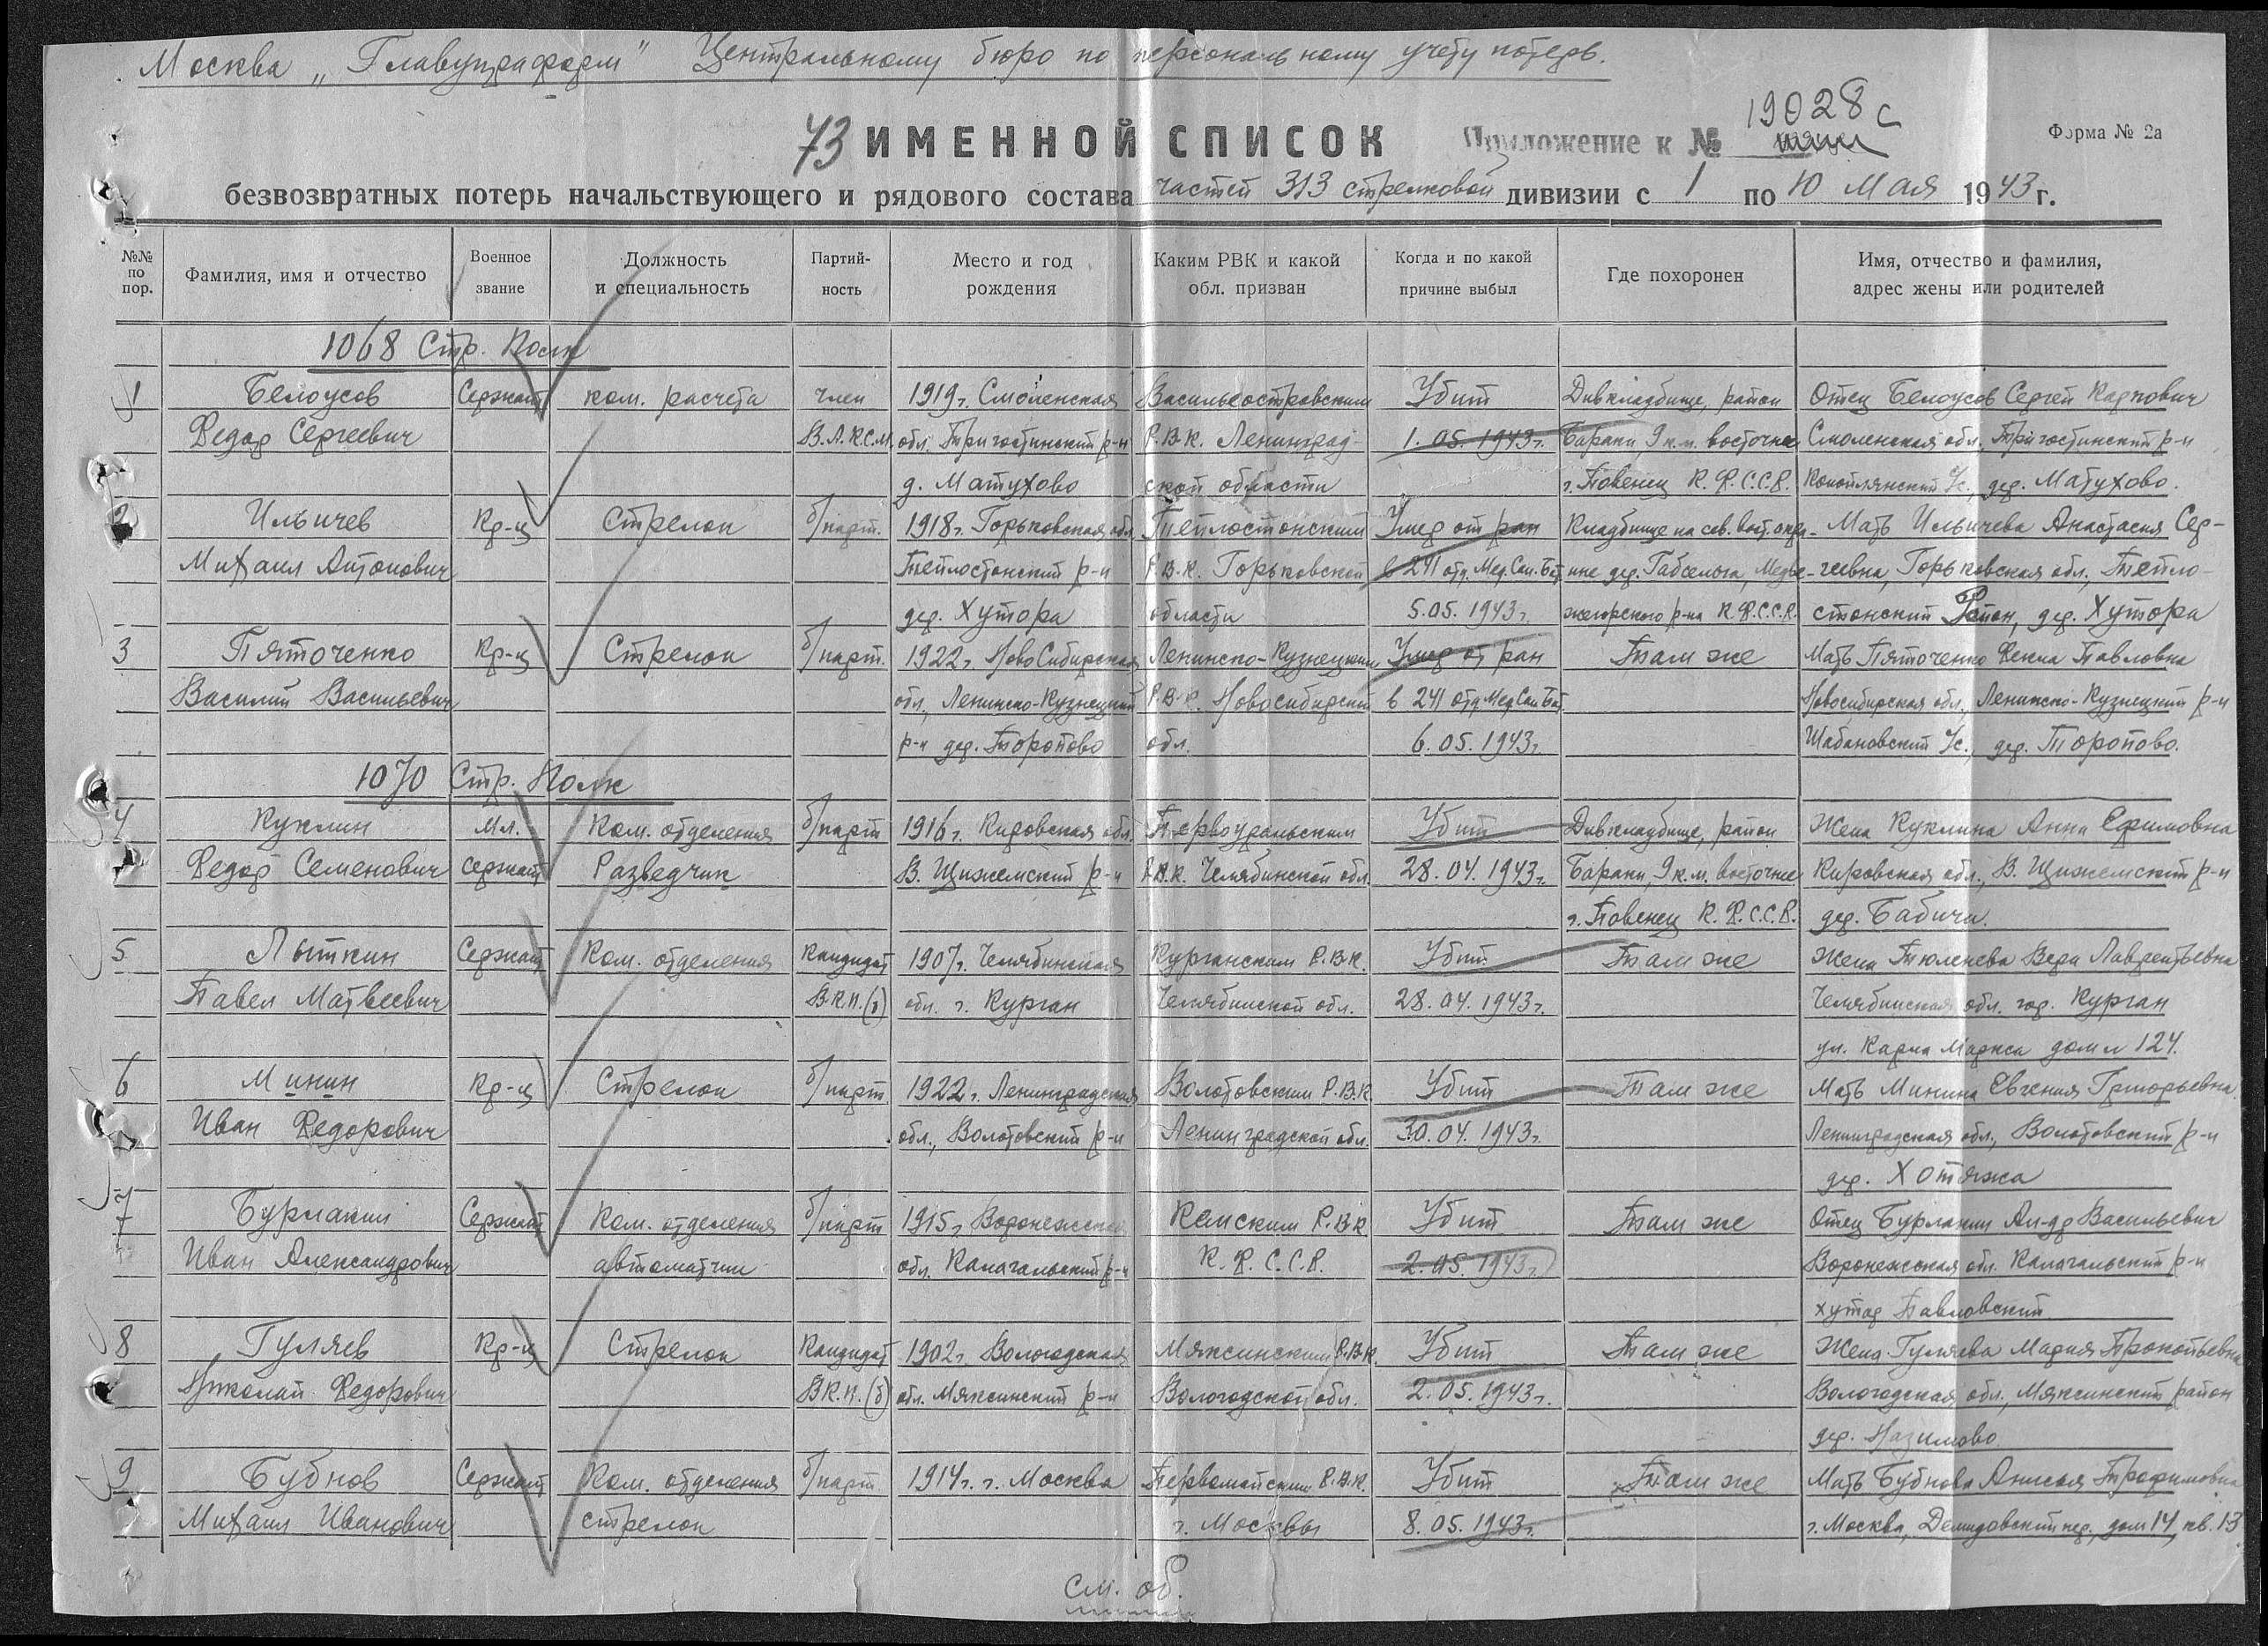 Москва „Главупраформ" Центральному бюро по персональному учету потерь.
73 ИМЕННОЙ СПИСОК Приложение к № 19028с
Форма № 2а
безвозвратных потерь начальствующего и рядового состава частей 313 стрелковой дивизии с 1 по 10 Мая 1943 г.
№№ по пор.
Фамилия, имя и отчество
Военное звание
Должность и специальность
Партий- ность
Место и год рождения
Каким РВК и какой обл. призван
Когда и по какой причине выбыл
Где похоронен
Имя, отчество и фамилия, адрес жены или родителей
1068 Стр. Полк
1 Белоусов Сержант ком. расчета член 1919г. Смоленская Василеостровским Убит Дивкладбище, район Отец Белоусов Сергей Карпович
Федор Сергеевич В.Л.К.С.М. обл. Пригостинский р-н Р.В.К. Ленинград- 1.05.1943г. Бараки, 9 к.м. восточнее Смоленская обл., Пригостинский р-н
д. Матухово ской области г. Повенец К.Ф.С.С.Р. с/с., дер. Матухово.
2 Ильичев Кр-ц Стрелок б/парт. 1918г. Горьковская обл. Теплостонским Умер от ран Кладбище на сев. вост. окра- Мать Ильичева Анастасия Сер-
Михаил Антонович Теплостонский р-н Р.В.К. Горьковской в 241 отд. Мед. Сан. Бат ине дер. Габсельга, Медве- геевна, Горьковская обл., Тепло-
дер. Хутора области 5.05.1943г. жегорского р-на К.Ф.С.С.Р. стонский Район, дер. Хутора
3 Пяточенко Кр-ц Стрелок б/парт. 1922г. НовоСибирская Ленинско-Кузнецким Умер от ран Там же Мать Пяточенко Фекла Павловна
Василий Васильевич обл., Ленинско-Кузнецкий Р.В.К. Новосибирской в 241 отд. Мед. Сан. Бат Новосибирская обл., Ленинско-Кузнецкий р-н
р-н дер. Торопово обл. 6.05.1943г. Шабановский с/с., дер. Торопово.
1070 Стр. Полк
4 Куклин Мл. Ком. отделения б/парт 1916г. Кировская обл. Первоуральским Убит Дивкладбище, район Жена Куклина Анна Ефимовна
Федор Семенович сержант Разведчик В. Шижемский р-н Р.В.К. Челябинской обл. 28.04.1943г. Бараки, 9 к.м. восточнее Кировская обл., В. Шижемский р-н
г. Повенец К.Ф.С.С.Р. дер. Бабичи.
5 Лыткин Сержант Ком. отделения Кандидат 1907г. Челябинская Курганским Р.В.К. Убит Там же Жена Тюленева Вера Лаврентьевна
Павел Матвеевич В.К.П.(б) обл. г. Курган Челябинской обл. 28.04.1943г. Челябинская обл. гор. Курган
ул. Карла Маркса дом № 124.
6 Минин Кр-ц Стрелок б/парт. 1922г. Ленинградская Волотовским Р.В.К. Убит Там же Мать Минина Евгения Григорьевна
Иван Федорович обл., Волотовский р-н Ленинградской обл. 30.04.1943г. Ленинградская обл., Волотовский р-н
дер. Хотяжа
7 Бурлакин Сержант Ком. отделения б/парт 1915г. Воронежская Кемским Р.В.К. Убит Там же Отец Бурлакин Ал-др Васильевич
Иван Александрович автоматчик обл. Калачальский р-н К.Ф.С.С.Р. 2.05.1943г. Воронежская обл. Калачальский р-н
хутор Павловский
8 Гуляев Кр-ц Стрелок Кандидат 1902г. Вологодская Мяксинским Р.В.К. Убит Там же Жена Гуляева Мария Прокопьевна
Николай Федорович В.К.П.(б) обл. Мяксинский р-н Вологодской обл. 2.05.1943г. Вологодская обл., Мяксинский район
дер. Назимово
9 Бубнов Сержант Ком. отделения б/парт 1914г. г. Москва Первомайским Р.В.К. Убит Там же Мать Бубнова Анисья Трофимовна
Михаил Иванович стрелок г. Москвы 8.05.1943г. г. Москва, Демидовский пер., дом 14, кв. 13
см. об.